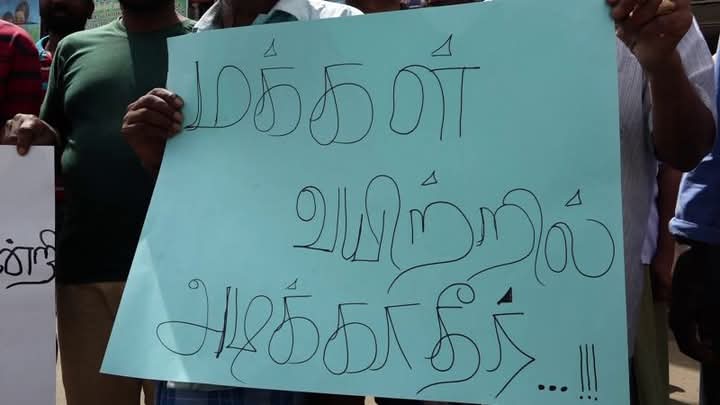 மக்கள்
வயிற்றில்
அடிக்காதீர்...!!!
ன்றி